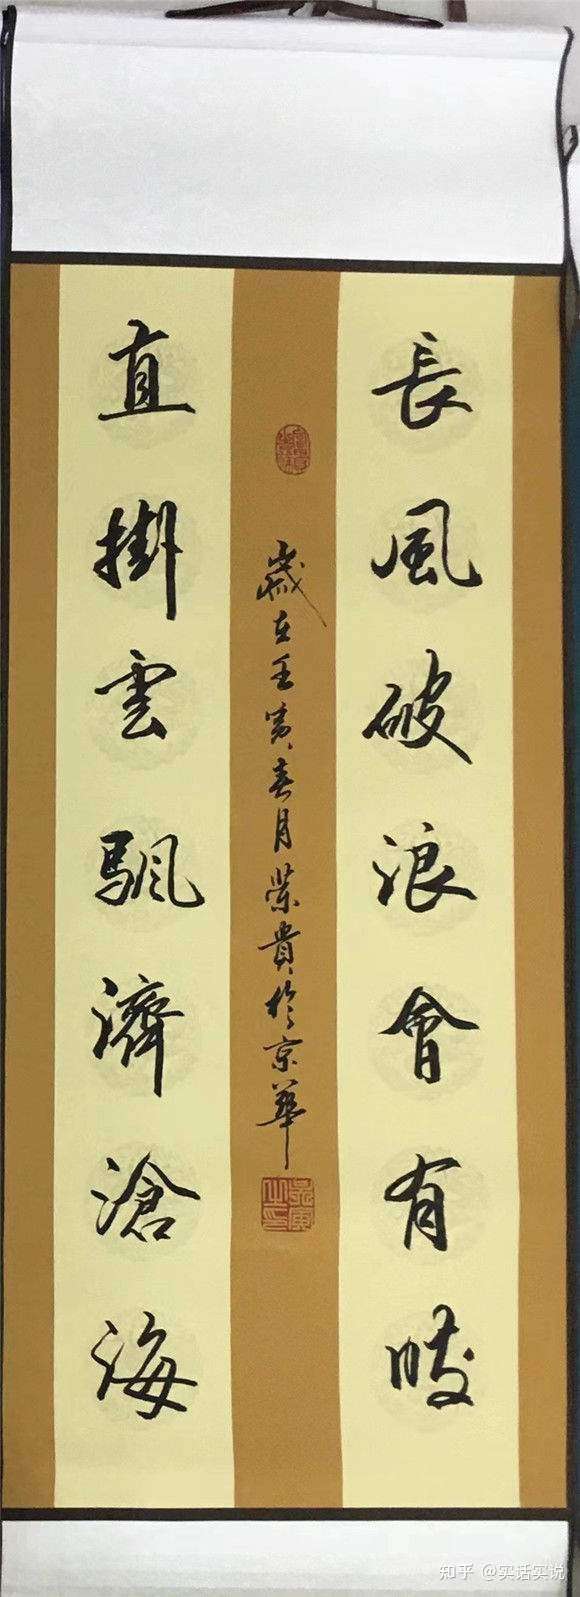 長風破浪會有時
直掛雲颿濟滄海
歲在壬寅春月榮貴於京華
知乎 @实话实说